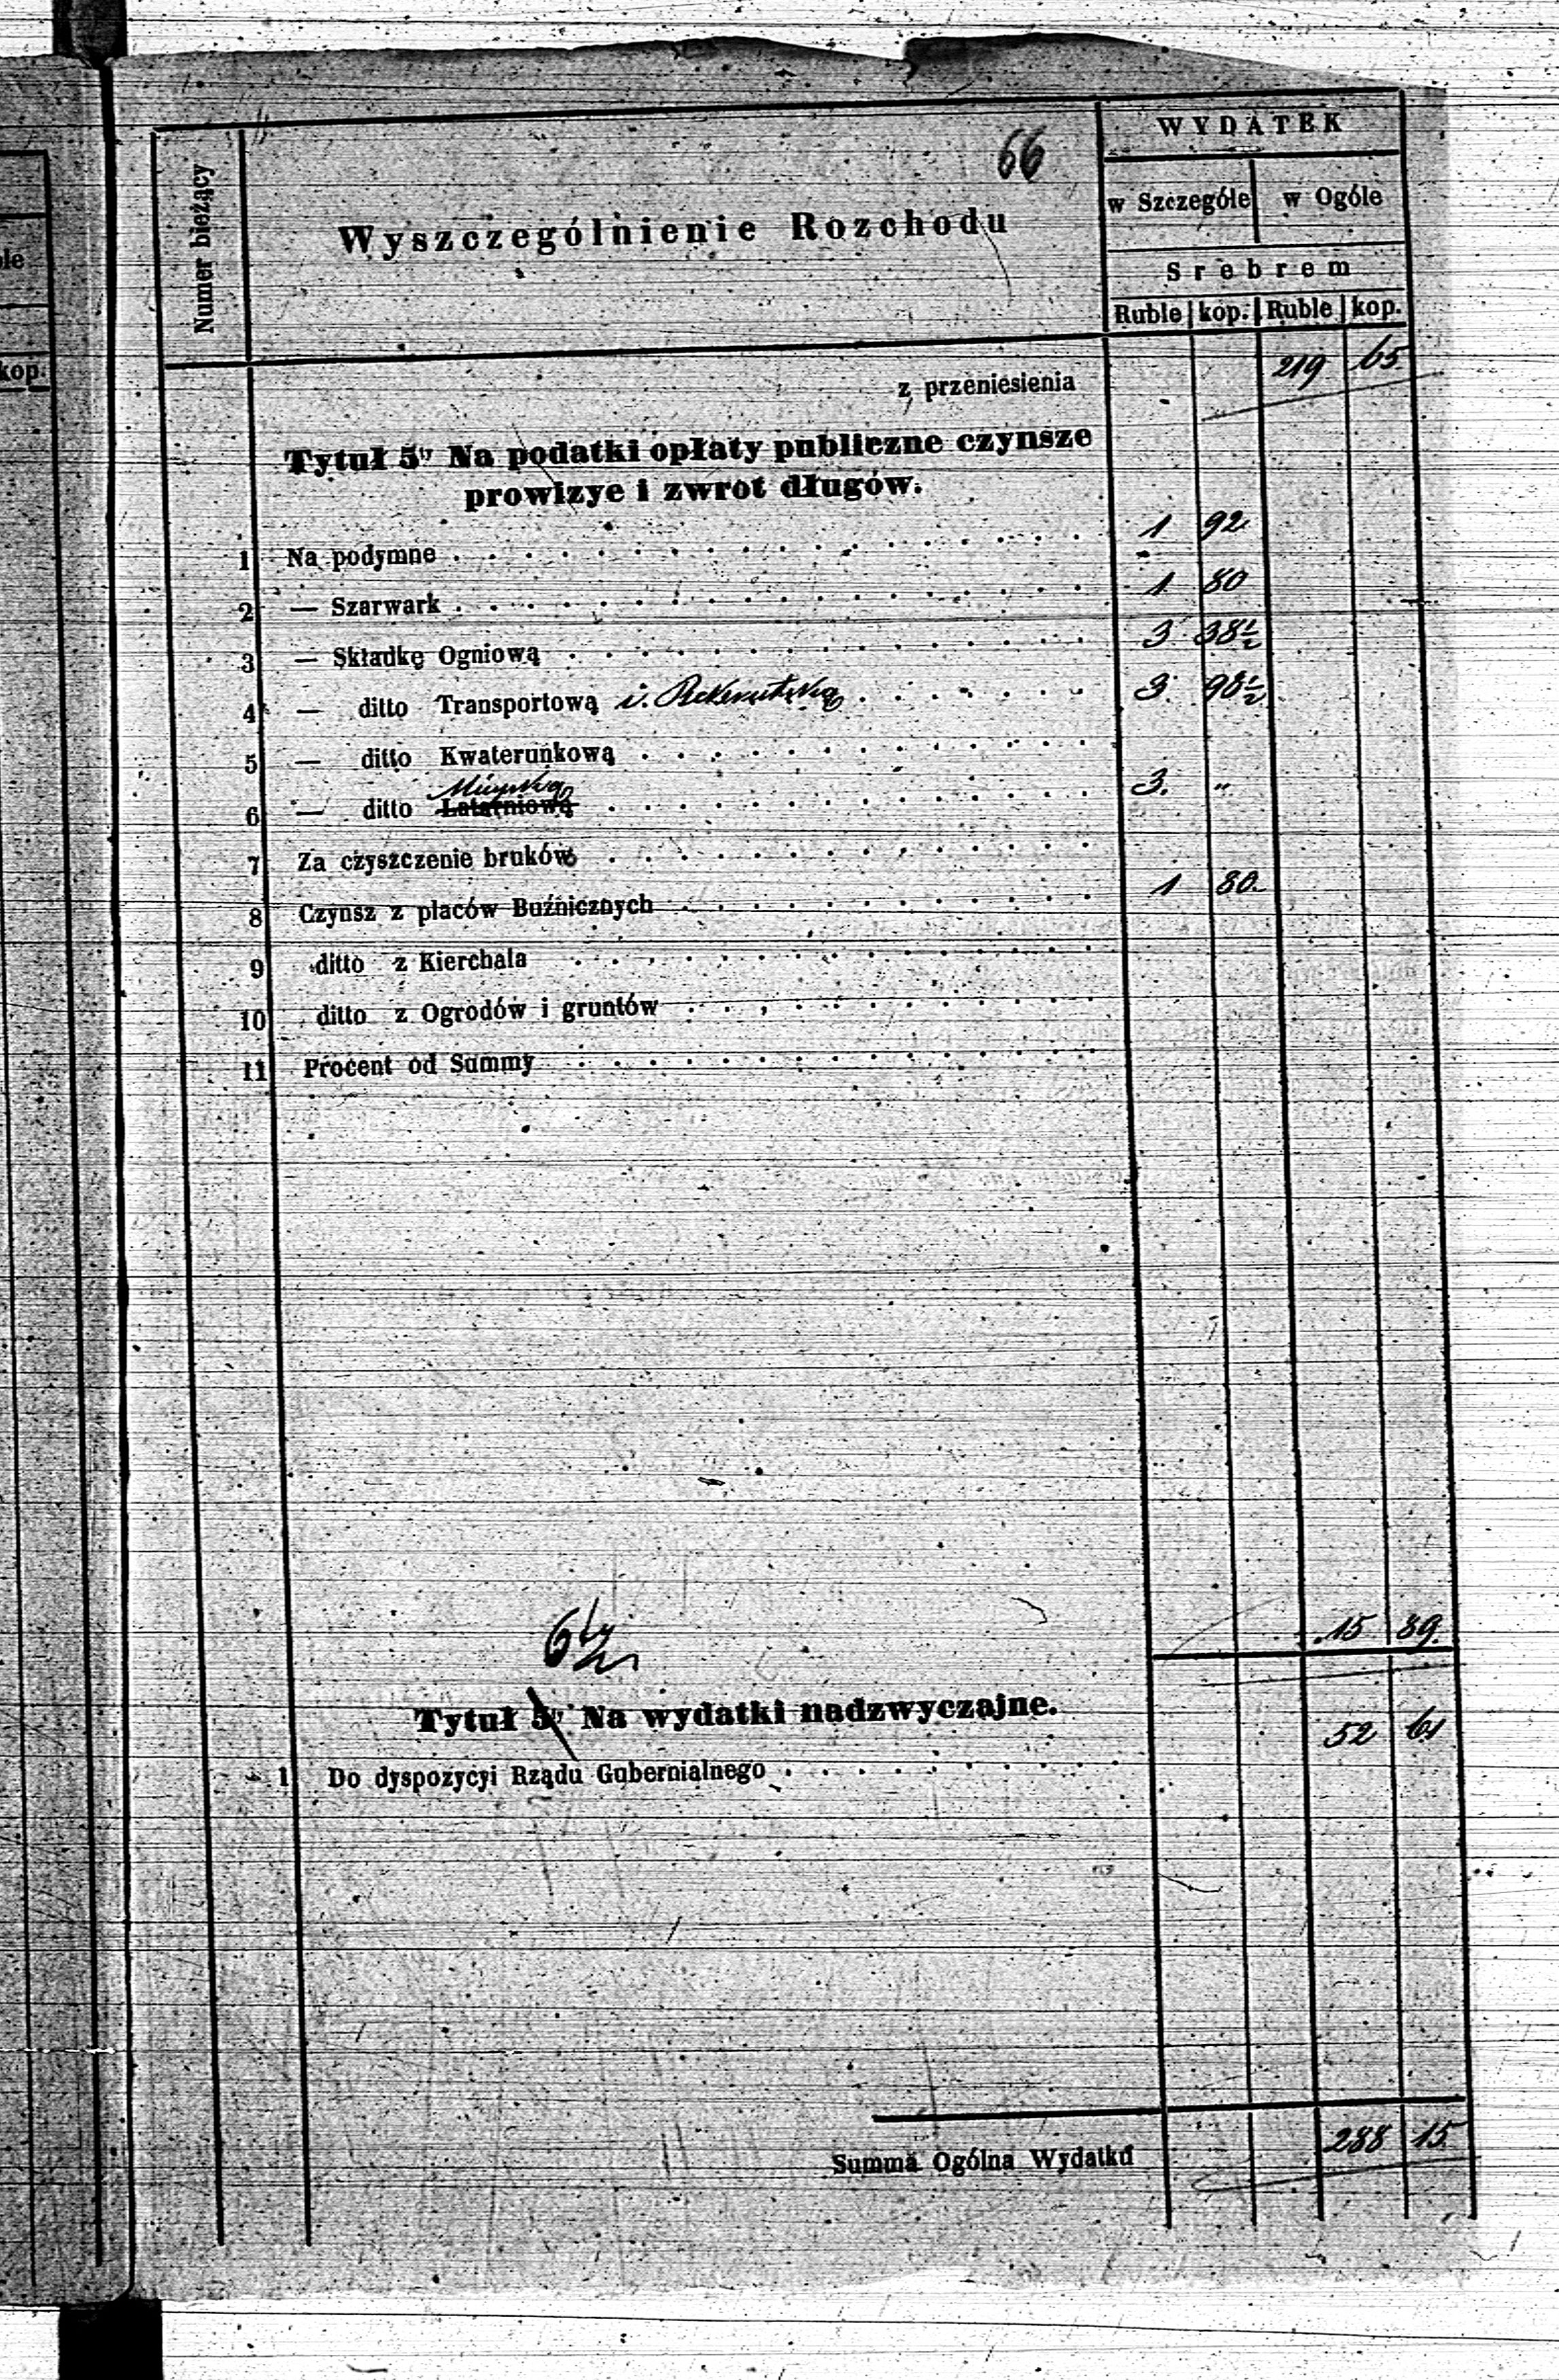 66
WYDATEK
Numer bieżący
Wyszczególnienie Rozchodu
w Szczególe w Ogóle
Srebrem
Ruble kop. Ruble kop.
le
kop.
z przeniesienia 219 65
Tytuł 5ty Na podatki opłaty publiczne czynsze
prowizye i zwrot długów.
1 Na podymne 1 92
2 — Szarwark 1 80
3 — Składkę Ogniową 3 38½
4 — ditto Transportową i Rekrutską 3 98½
5 — ditto Kwaterunkową
Miejską
6 — ditto Latarniową 3. "
7 Za czyszczenie bruków
8 Czynsz z placów Bużnicznych 1 80
9 ditto z Kierchala
10 ditto z Ogrodów i gruntów
11 Procent od Summy
15 89
6ty
Tytuł 5ty Na wydatki nadzwyczajne.
52 61
1 Do dyspozycyi Rządu Gubernialnego
Summa Ogólna Wydatku 288 15